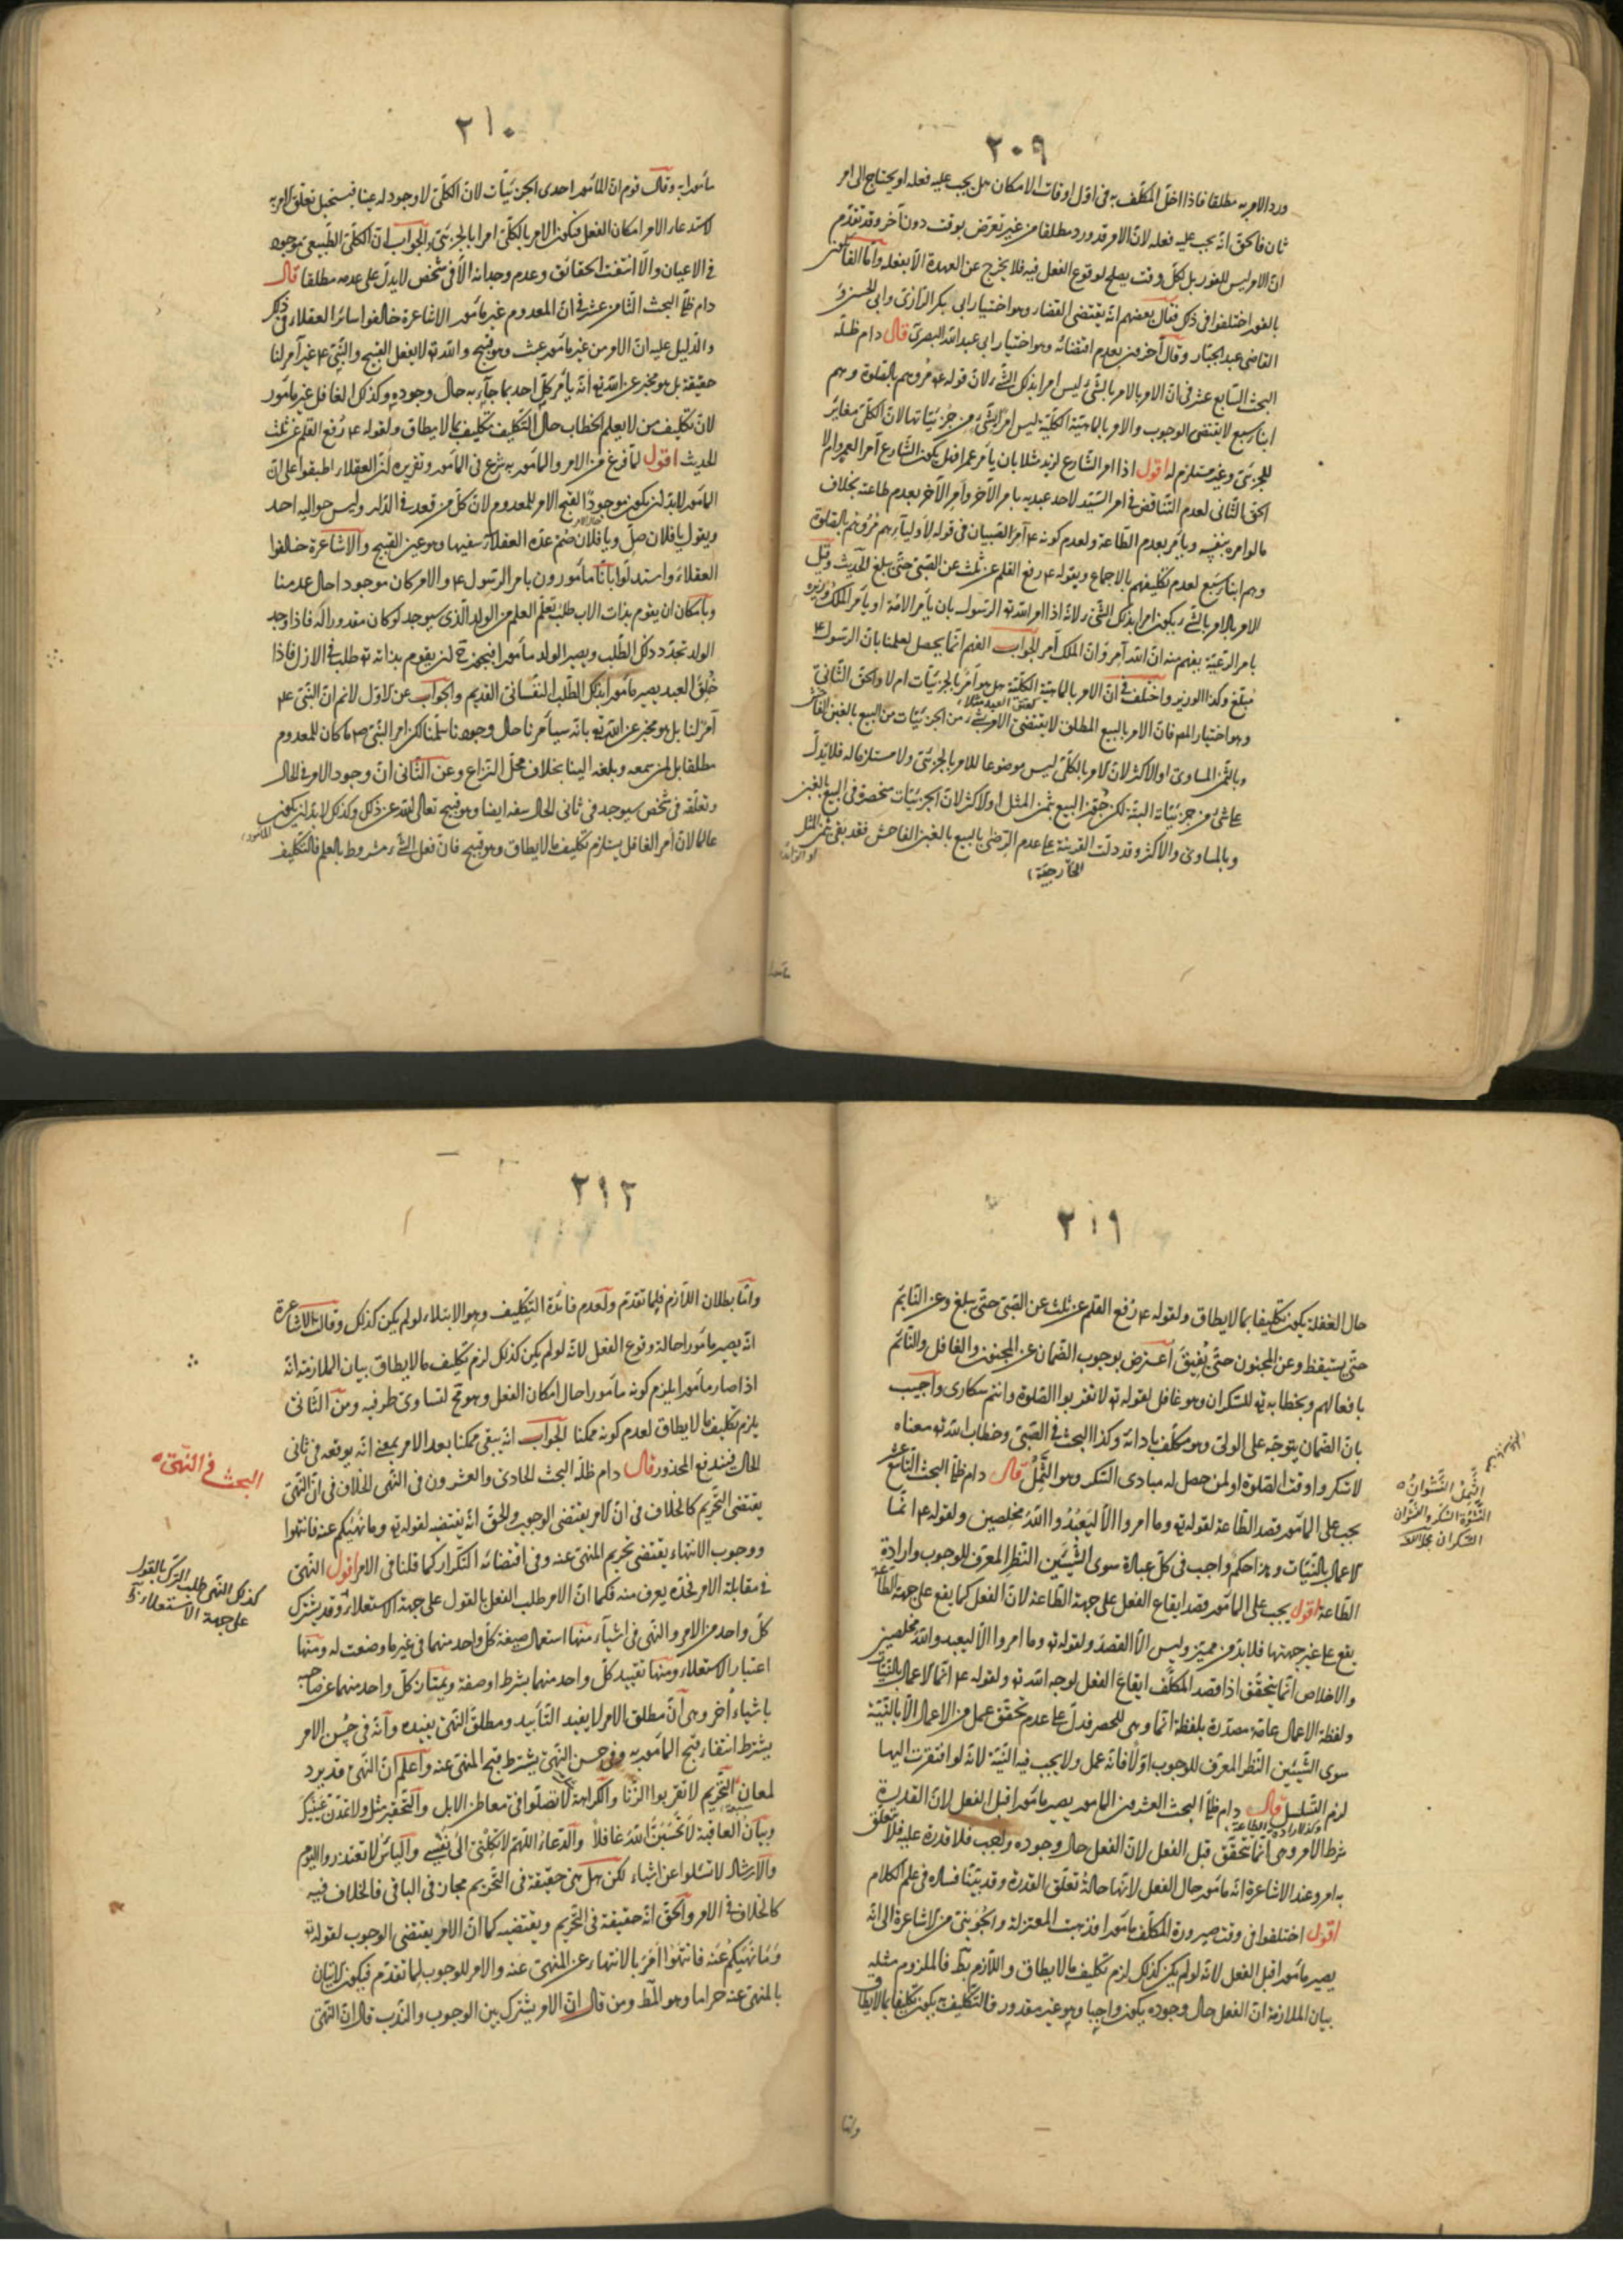 ٢٠٩
ورد الامر به مطلقا فاذا اخلّ المكلّف به فى اوّل اوقات الامكان هل يجب عليه فعله او يحتاج الى امر
ثان فالحق انّه يجب عليه فعله لانّ الامر قد ورد مطلقا من غير تعرّض بوقت دون آخر وقد تقدّم
انّ الامر ليس للفور بل كلّ وقت يصلح لوقوع الفعل فيه فلا يخرج عن العهدة الّا بفعله وامّا القائلون
بالفور اختلفوا فى ذلك فقال بعضهم انّه يقتضى القضاء وهو اختيار ابى بكر الرّازى وابى الحسن و
القاضى عبد الجبّار وقال آخرون بعدم اقتضائه وهو اختيار ابى عبد اللّه البصرىّ قال دام ظلّه
البحث السّابع عشر فى انّ الامر بالامر بالشّئ ليس امرا بذلك الشّئ لانّ قوله ع مروهم بالصّلوة وهم
ابناء سبع لا يقتضى الوجوب والامر بالماهيّة الكلّية ليس امرا بشئ من جزئيّاتها لانّ الكلّىّ مغاير
للجزئىّ وغير مستلزم له اقول اذا امر الشّارع لزيد مثلا بان يأمر عمرا فهل يكون الشّارع آمرا لعمرو ام لا
الحق الثّانى لعدم التّناقض فى امر السّيّد لاحد عبديه بامر الآخر وأمر الآخر بعدم طاعته بخلاف
ما لو امره بنفسه ويأمر بعدم الطّاعة ولعدم كونه ع آمر الصّبيان فى قوله لاوليآءهم مروهم بالصّلوة
وهم ابناء سبع لعدم تكليفهم بالاجماع وبقوله ع رفع القلم عن ثلث عن الصّبىّ حتّى يبلغ الحديث وقيل
الامر بالامر بالشّئ يكون امرا بذلك الشّئ لانّه اذا امر اللّه ته الرّسول بان يأمر الامّة او يأمر الملك وزيره
بامر الرّعيّة يفهم منه انّ اللّه آمر وانّ الملك آمر الجواب الفهم انّما يحصل لعلمنا بانّ الرّسول ع
مبلّغ وكذا الوزير واختلف فى انّ الامر بالماهيّة الكلّيّة هل هو امر بالجزئيّات ام لا والحق الثّانى
وهو اختيار المص فانّ الامر بالبيع المطلق لا يقتضى الامر بشئ من الجزئيّات من البيع بالغبن الفاحش
وبالثّمن المساوى او الاكثر لانّ الامر بالكلّى ليس موضوعا للامر بالجزئى ولا مستلزما له فلا يدلّ
على شئ من جزئيّاته البتّة لكن جوّز البيع بثمن المثل او الاكثر لانّ الجزئيّات منحصرة فى البيع بالغبن
وبالمساوى والاكثر وقد دلّت القرينة على عدم الرّضى بالبيع بالغبن الفاحش فقد بقى ثمن المثل
او الزّائد
الخارجيّة
٢١٠
مأمورا به وقال قوم انّ المأمور احدى الجزئيّات لانّ الكلّىّ لا وجود له عينا فيستحيل تعلّق الامر به
لاستدعاء الامر امكان الفعل فيكون الامر بالكلّىّ امرا بالجزئىّ والجواب انّ الكلّىّ الطّبيعىّ موجود
فى الاعيان والّا انتفت الحقائق وعدم وجدانه الّا فى شخص لا يدلّ على عدمه مطلقا قال
دام ظلّه البحث الثّامن عشر فى انّ المعدوم غير مأمور الاشاعرة خالفوا سائر العقلاء فى ذلك
والدّليل عليه انّ الامر من غير مأمور عبث وهو قبيح واللّه ته لا يفعل القبيح والنّبىّ ع غير آمر لنا
حقيقة بل هو مخبر عن اللّه ته انّه يأمر كلّ احد بما جآء به حال وجوده وكذلك الغافل غير مأمور
لانّ تكليف من لا يعلم الخطاب حال التّكليف تكليف بما لا يطاق ولقوله ع رُفع القلم عن ثلث
الحديث اقول لمّا فرغ من الامر والمأمور به شرع فى المأمور وتقريره انّ العقلاء اطبقوا على انّ
المأمور لا بدّ ان يكون موجودًا لقبح الامر للمعدوم لانّ كلّ من قعد فى الدّار وليس حواليه احد
ويقول يا فلان صلّ ويا فلان صم عدّه العقلاء سفيها وهو عين القبيح والاشاعرة خالفوا
العقلاء واستدلّوا بانّا مأمورون بامر الرّسول ع والامر كان موجودا حال عدمنا
وبامكان ان يقوم بذات الاب طلب تعلّم العلم من الولد الّذى سيوجد لو كان مقدورا له فاذا وجد
الولد تجدّد ذلك الطّلب ويصير الولد مأمورا فيجوز ح ان يقوم بذاته ته طلب فى الازل فاذا
خُلِق العبد يصير مأمورا بذلك الطّلب النّفسانىّ القديم والجواب عن الاوّل لا نم انّ النّبىّ ع
آمر لنا بل هو مخبر عن اللّه ته بانّه سيأمرنا حال وجودنا سلّمنا لكن امر النّبىّ ص ما كان للمعدوم
مطلقا بل لمن سمعه وبلغه الينا بخلاف محلّ النّزاع وعن الثّانى انّ وجود الامر فى الحال
وتعلّقه فى شخص سيوجد فى ثانى الحال سفه ايضا وهو قبيح تعالى اللّه عن ذلك وكذلك لا بدّ ان يكون
المأمور
عالما لانّ أمر الغافل يستلزم تكليف ما لا يطاق وهو قبيح فانّ فعل الشّئ مشروط بالعلم فالتّكليف
٢١١
حال الغفلة يكون تكليفا بما لا يطاق ولقوله ع رُفع القلم عن ثلث عن الصّبىّ حتّى يبلغ وعن النّائم
حتّى يستيقظ وعن المجنون حتّى يُفيقَ اعترض بوجوب الضّمان عن المجنون والغافل والنّائم
بافعالهم وبخطابه ته للسّكران وهو غافل لقوله ته لا تقربوا الصّلوة وانتم سكارى واجيب
بانّ الضّمان يتوجّه على الولىّ وهو مكلّف بادائه وكذا البحث فى الصّبىّ وخطاب اللّه ته معناه
لا تسكروا وقت الصّلوة او لمن حصل له مبادى السّكر وهو الثّمِلُ قال دام ظلّه البحث التّاسع عشر
يجب على المأمور قصد الطّاعة لقوله ته وما امروا الّا ليَعبُدُوا اللّهَ مخلِصين ولقوله ع انّما
الاعمال بالنّيّات وهذا حكم واجب فى كلّ عبادة سوى الشّيئين النّظر المعرّف للوجوب وارادة
الطّاعة اقول يجب على المأمور قصد ايقاع الفعل على جهة الطّاعة لانّ الفعل كما يقع على جهة الطّاعة
يقع على غير جهتها فلا بدّ من مميّز وليس الّا القصد ولقوله ته وما امروا الّا ليعبدوا اللّه مخلصين
والاخلاص انّما يتحقّق اذا قصد المكلّف ايقاع الفعل لوجه اللّه ته ولقوله ع انّما الاعمال بالنّيّات
ولفظة الاعمال عامّة مصدّرة بلفظة انّما وهى للحصر فدلّ على عدم تحقّق عمل من الاعمال الّا بالنّيّة
سوى الشّيئين النّظر المعرّف للوجوب اوّلا فانّه عمل ولا يجب فيه النّيّة لانّه لو افتقرت اليها
لزم التّسلسل وكذا ارادة الطّاعة قال دام ظلّه البحث العشرون المأمور يصير مأمورا قبل الفعل لانّ القدرة
شرط الامر وهى انّما تتحقّق قبل الفعل لانّ الفعل حال وجوده واجب فلا قدرة عليه فلا تعلّق
به امر وعند الاشاعرة انّه مأمور حال الفعل لانّها حالة تعلّق القدرة وقد بيّنّا فساده فى علم الكلام
اقول اختلفوا فى وقت صيرورة المكلّف مأمورا فذهبت المعتزلة والجُوَينى من الاشاعرة الى انّه
يصير مأمورا قبل الفعل لانّه لو لم يكن كذلك لزم تكليف ما لا يطاق واللّازم بط فالملزوم مثله
بيان الملازمة انّ الفعل حال وجوده يكون واجبا وهو غير مقدور فالتّكليف به يكون تكليفا بما لا يطاق
الثّمِلُ النّشوان
النّشوة السّكر والنّشوان
السّكران
وامّا
٢١٢
وامّا بطلان اللّازم فلما تقدّم ولعدم فائدة التّكليف وهو الابتلاء لو لم يكن كذلك وقالت الاشاعرة
انّه يصير مأمورا حالة وقوع الفعل لانّه لو لم يكن كذلك لزم تكليف ما لا يطاق بيان الملازمة انّه
اذا صار مأمورا يلزم كونه مأمورا حال امكان الفعل وهو مح لتساوى طرفيه ومن الثّانى
يلزم تكليف ما لا يطاق لعدم كونه ممكنا الجواب انّه يبقى ممكنا بعد الامر بمعنى انّه يوقعه فى ثانى
الحال فيندفع المحذور قال دام ظلّه البحث الحادى والعشرون فى النّهى الخلاف فى انّ النّهى
يقتضى التّحريم كالخلاف فى انّ الامر يقتضى الوجوب والحقّ انّه يقتضيه لقوله ته وما نهيكم عنه فانتهوا
ووجوب الانتهاء يقتضى تحريم المنهىّ عنه وفى اقتضائه التّكرار كما قلنا فى الامر اقول النّهى
فى مقابلة الامر فحدّه يعرف منه فكما انّ الامر طلب الفعل بالقول على جهة الاستعلاء وقد يشترك
كلّ واحد من الامر والنّهى فى اشيآء منها استعمال صيغة كلّ واحد منهما فى غير ما وضعت له ومنها
اعتبار الاستعلاء ومنها تقييد كلّ واحد منهما بشرط او صفة ويمتاز كلّ واحد منهما عن صاحبه
باشياء أُخر وهى انّ مطلق الامر لا يفيد التّأبيد ومطلق النّهى يفيده وانّه فى حُسن الامر
يشترط انتفاء قبح المأمور به وفى حسن النّهى يشترط قبح المنهىّ عنه واعلم انّ النّهى قد يرد
لمعان التّحريم لا تقربوا الزّنا والكراهة لا تصلّوا فى معاطن الابل والتّحقير مثل ولا تمدّنّ عَينيك
وبيان العاقبة لا تحسَبنّ اللّهَ غافلًا والدّعاء اللّهمّ لا تكِلْنى الى نفسى والياس لا تعتذروا اليوم
والارشاد لا تسئلوا عن اشياء لكن هل هى حقيقة فى التّحريم مجاز فى الباقى فالخلاف فيه
كالخلاف فى الامر والحقّ انّه حقيقة فى التّحريم ويقتضيه كما انّ الامر يقتضى الوجوب لقوله ته
وَمَا نَهَيكُم عَنه فانتهُوا أمَرَ بالانتهاء عن المنهىّ عنه والامر للوجوب لما تقدّم فيكون الاتيان
بالمنهىّ عنه حراما وهو المط ومن قال انّ الامر يشترك بين الوجوب والنّدب قال انّ النّهى
البحث فى النّهى
كذلك النّهى طلب التّرك بالقول
على جهة الاستعلاء